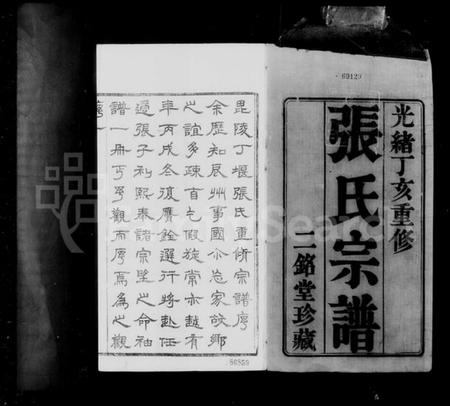 69129
光緒丁亥重修
張氏宗譜
二銘堂珍藏
毘陵丁堰張氏重修宗譜序
余歷知辰州事國亦忘家故鄉
之誼多疎首乞假旋常亦越有
年丙戌冬復膺銓選行將赴任
適張子利熙奉諸宗望之命袖
譜一冊丐予觀而序焉爲之觀
86859